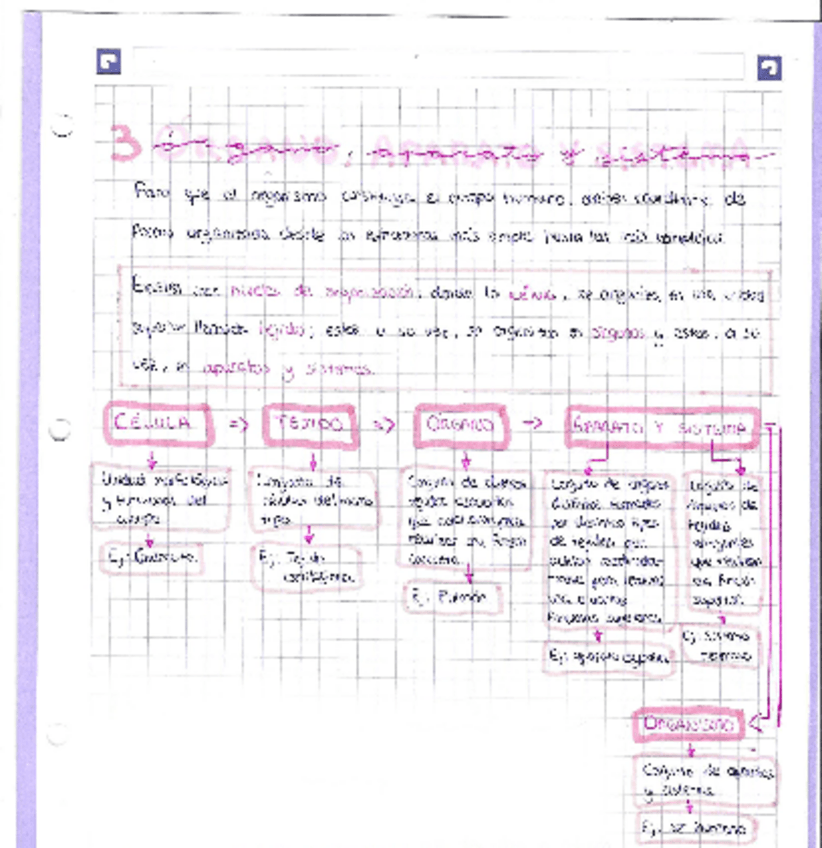 3 Órgano, aparato y sistema
Para que el organismo constituya el cuerpo humano, deben coordinarse de
forma organizada desde las estructuras más simples hasta las más complejas.
Existen unos niveles de organización, donde la célula, se organiza en una unidad
superior llamada tejido; estos a su vez, se organizan en órganos y estos, a su
vez, en aparatos y sistemas.
CÉLULA => TEJIDO => ÓRGANO -> APARATO Y SISTEMA
Unidad morfológica
y funcional del
cuerpo
Ej:
Conjunto de
células del mismo
tipo
Ej: Tejido
cartilaginoso
Conjunto de diversos
tejidos
que
realizar una función
concreta
Ej: Pulmón
Conjunto de órganos
distintos formados
por distintos tipos
de tejidos que
actúan
para realizar
una o varias
funciones superiores
Ej: aparato
Conjunto de
órganos de
tejidos
que realizan
una función
superior
Ej: sistema
nervioso
ORGANISMO
Conjunto de aparatos
y sistema
Ej. ser humano